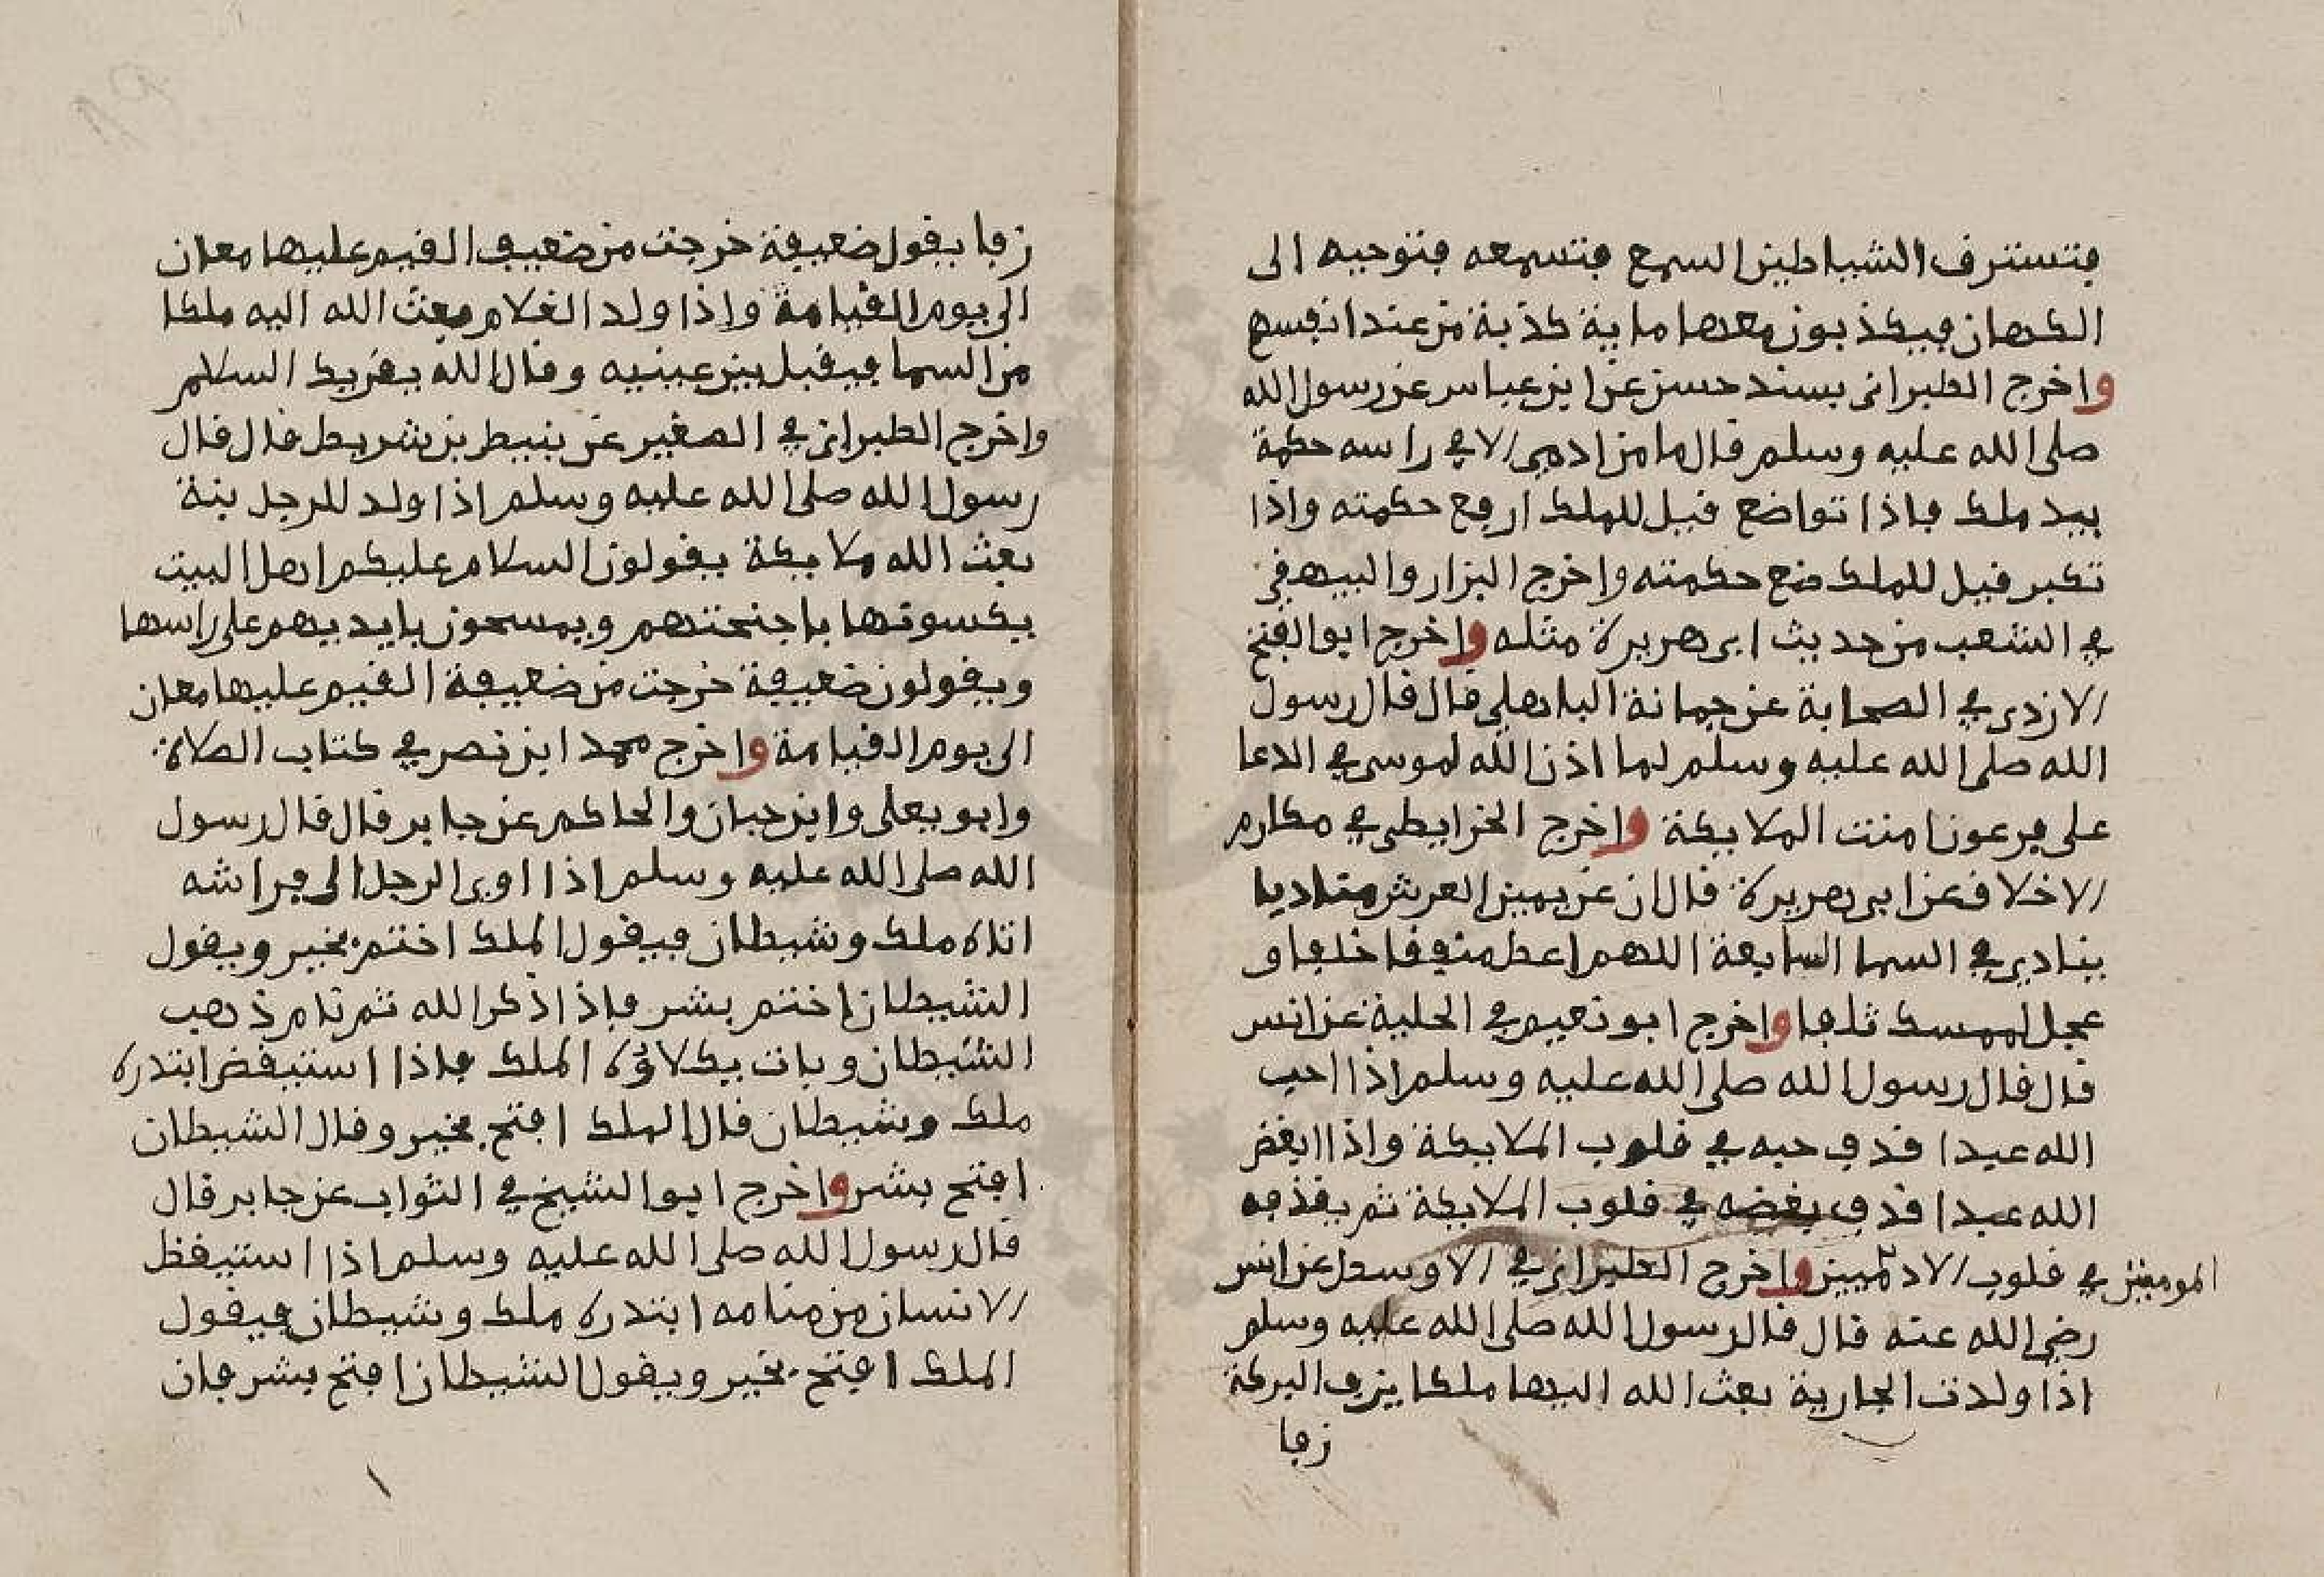 فتسترق الشياطين السمع فتسمعه فتوحيه الى
الكهان فيكذبون معها ماية كذبة من عند انفسهم
واخرج الطبراني بسند حسن عن ابن عباس عن رسول الله
صلى الله عليه وسلم قال ما من ادمي الا في راسه حكمة
بيد ملك فاذا تواضع قيل للملك ارفع حكمته واذا
تكبر قيل للملك ضع حكمته واخرج البزار والبيهقي
في الشعب من حديث ابي هريرة مثله واخرج ابو الفتح
الازدي في الصحابة عن جمانة الباهلي قال قال رسول
الله صلى الله عليه وسلم لما اذن الله لموسى في الدعا
على فرعون امنت الملايكة واخرج الخرايطي في مكارم
الاخلاق عن ابي هريرة قال ان عن يمين العرش مناديا
ينادي في السما السابعة اللهم اعط منفقا خلفا و
عجل لممسك تلفا واخرج ابو نعيم في الحلية عن انس
قال قال رسول الله صلى الله عليه وسلم اذا احب
الله عبدا قذف حبه في قلوب الملايكة واذا ابغض
الله عبدا قذف بغضه في قلوب الملايكة ثم يقذفه
المومنين في قلوب الادميين واخرج الطبراني في الاوسط عن انس
رضي الله عنه قال قال رسول الله صلى الله عليه وسلم
اذا ولدت الجارية بعث الله اليها ملكا يزف البركة
زفا
زفا يقول ضعيفة خرجت من ضعيف القيم عليها معان
الى يوم القيامة واذا ولد الغلام بعث الله اليه ملكا
من السما فيقبل بين عينيه وقال الله يقريك السلام
واخرج الطبراني في الصغير عن نبيط بن شريط قال قال
رسول الله صلى الله عليه وسلم اذا ولد للرجل بنة
بعث الله ملايكة يقولون السلام عليكم اهل البيت
يكسونها باجنحتهم ويمسحون بايديهم على راسها
ويقولون ضعيفة خرجت من ضعيفة القيم عليها معان
الى يوم القيامة واخرج محمد ابن نصر في كتاب الصلاة
وابو يعلى وابن حبان والحاكم عن جابر قال قال رسول
الله صلى الله عليه وسلم اذا اوى الرجل الى فراشه
اتاه ملك وشيطان فيقول الملك اختم بخير ويقول
الشيطان اختم بشر فاذا ذكر الله ثم نام ذهب
الشيطان وبات يكلاؤه الملك فاذا استيقض ابتدره
ملك وشيطان قال الملك افتح بخير وقال الشيطان
افتح بشر واخرج ابو الشيخ في الثواب عن جابر قال
قال رسول الله صلى الله عليه وسلم اذا استيقظ
الانسان من منامه ابتدره ملك وشيطان فيقول
الملك افتح بخير ويقول الشيطان افتح بشر فان